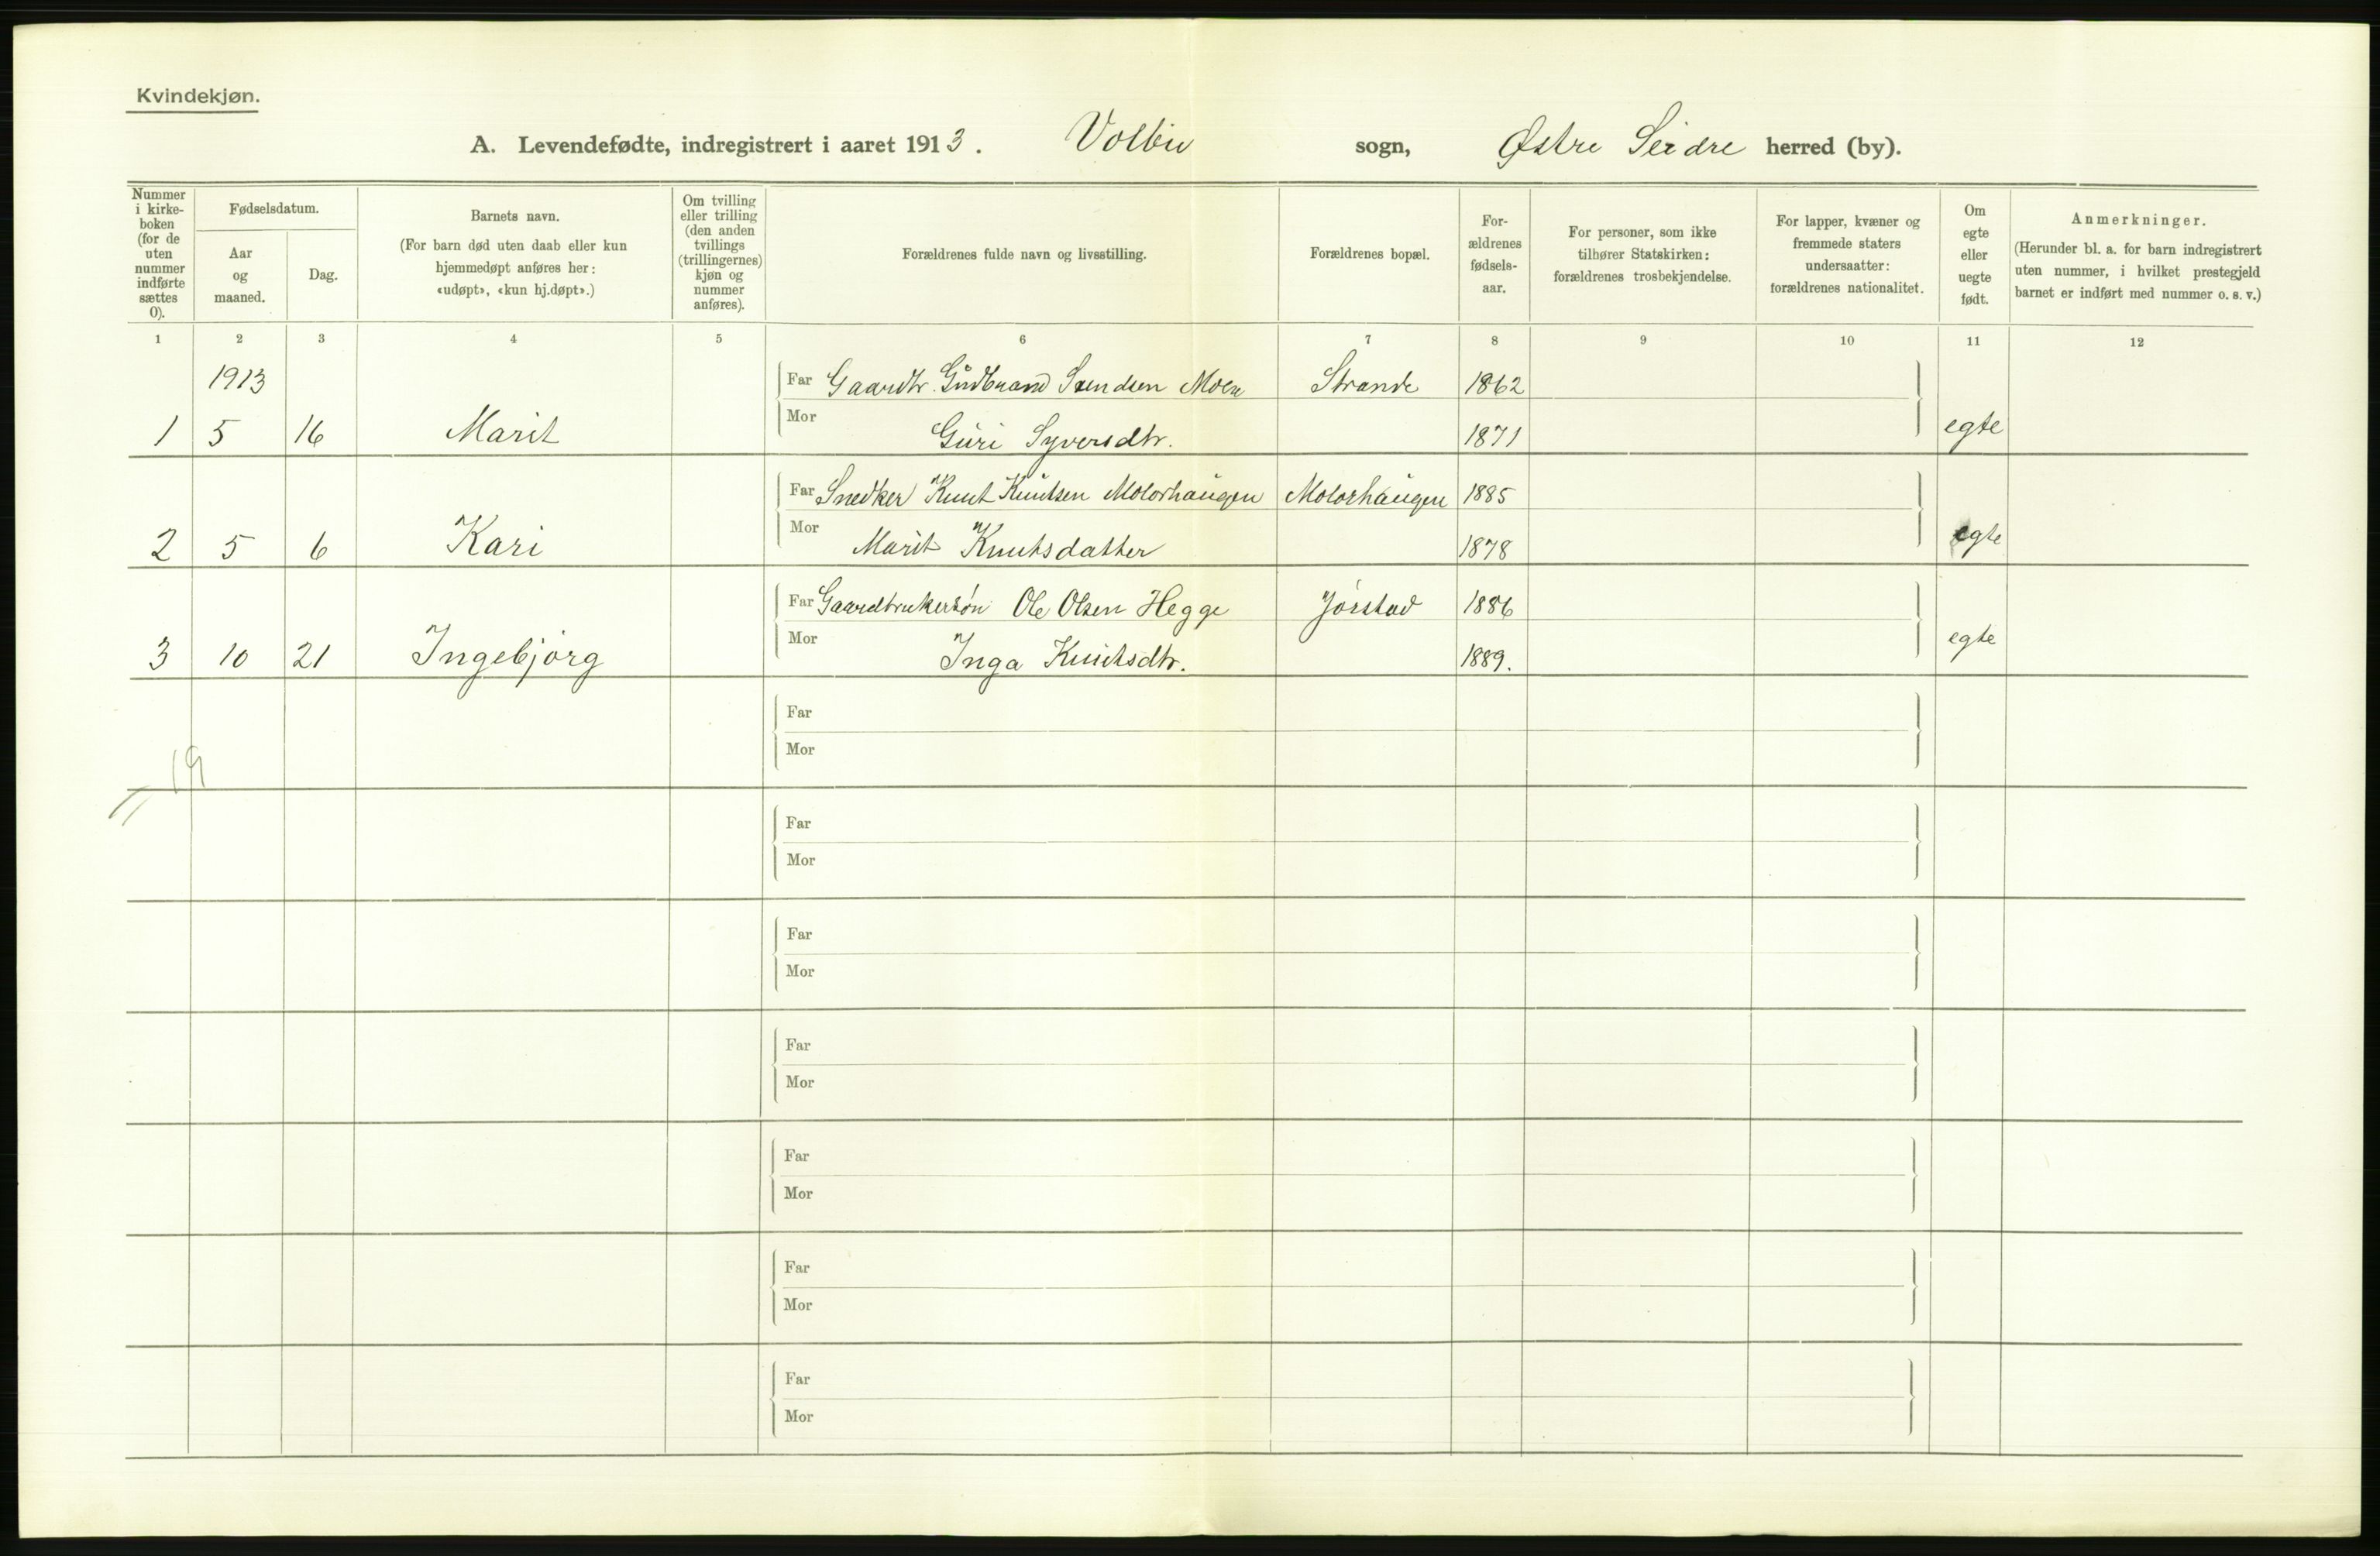 Kvindekjøn.
A. Levendefødte, indregistrert i aaret 1913. Volbu sogn, Østre Slidre herred (by).
Nummer i kirke-boken (for de uten nummer indførte sættes 0).
Fødselsdatum.
Aar og maaned.
Dag.
Barnets navn.
(For barn død uten daab eller kun hjemmedøpt anføres her: «udøpt», «kun hj.døpt».)
Om tvilling eller trilling (den anden tvillings (trillingernes) kjøn og nummer anføres).
Forældrenes fulde navn og livsstilling.
Forældrenes bopæl.
For-ældrenes fødsels-aar.
For personer, som ikke tilhører Statskirken: forældrenes trosbekjendelse.
For lapper, kvæner og fremmede staters undersaatter: forældrenes nationalitet.
Om egte eller uegte født.
Anmerkninger.
(Herunder bl. a. for barn indregistrert uten nummer, i hvilket prestegjeld barnet er indført med nummer o. s. v.)
1 2 3 4 5 6 7 8 9 10 11 12
1913 Far Gaardbr. Gudbrand Svendsen Moen Strande 1862
1 5 16 Marit Mor Guri Syversdtr. 1871 egte
Far Snedker Knut Knutsen Molorhaugen Molorhaugen 1885
2 5 6 Kari Mor Marit Knutsdatter 1878 egte
Far Gaardbrukersøn Ole Olsen Hegge Jørstad 1886
3 10 21 Ingebjørg Mor Inga Knutsdtr. 1889. egte
Far
Mor
19
Far
Mor
Far
Mor
Far
Mor
Far
Mor
Far
Mor
Far
Mor